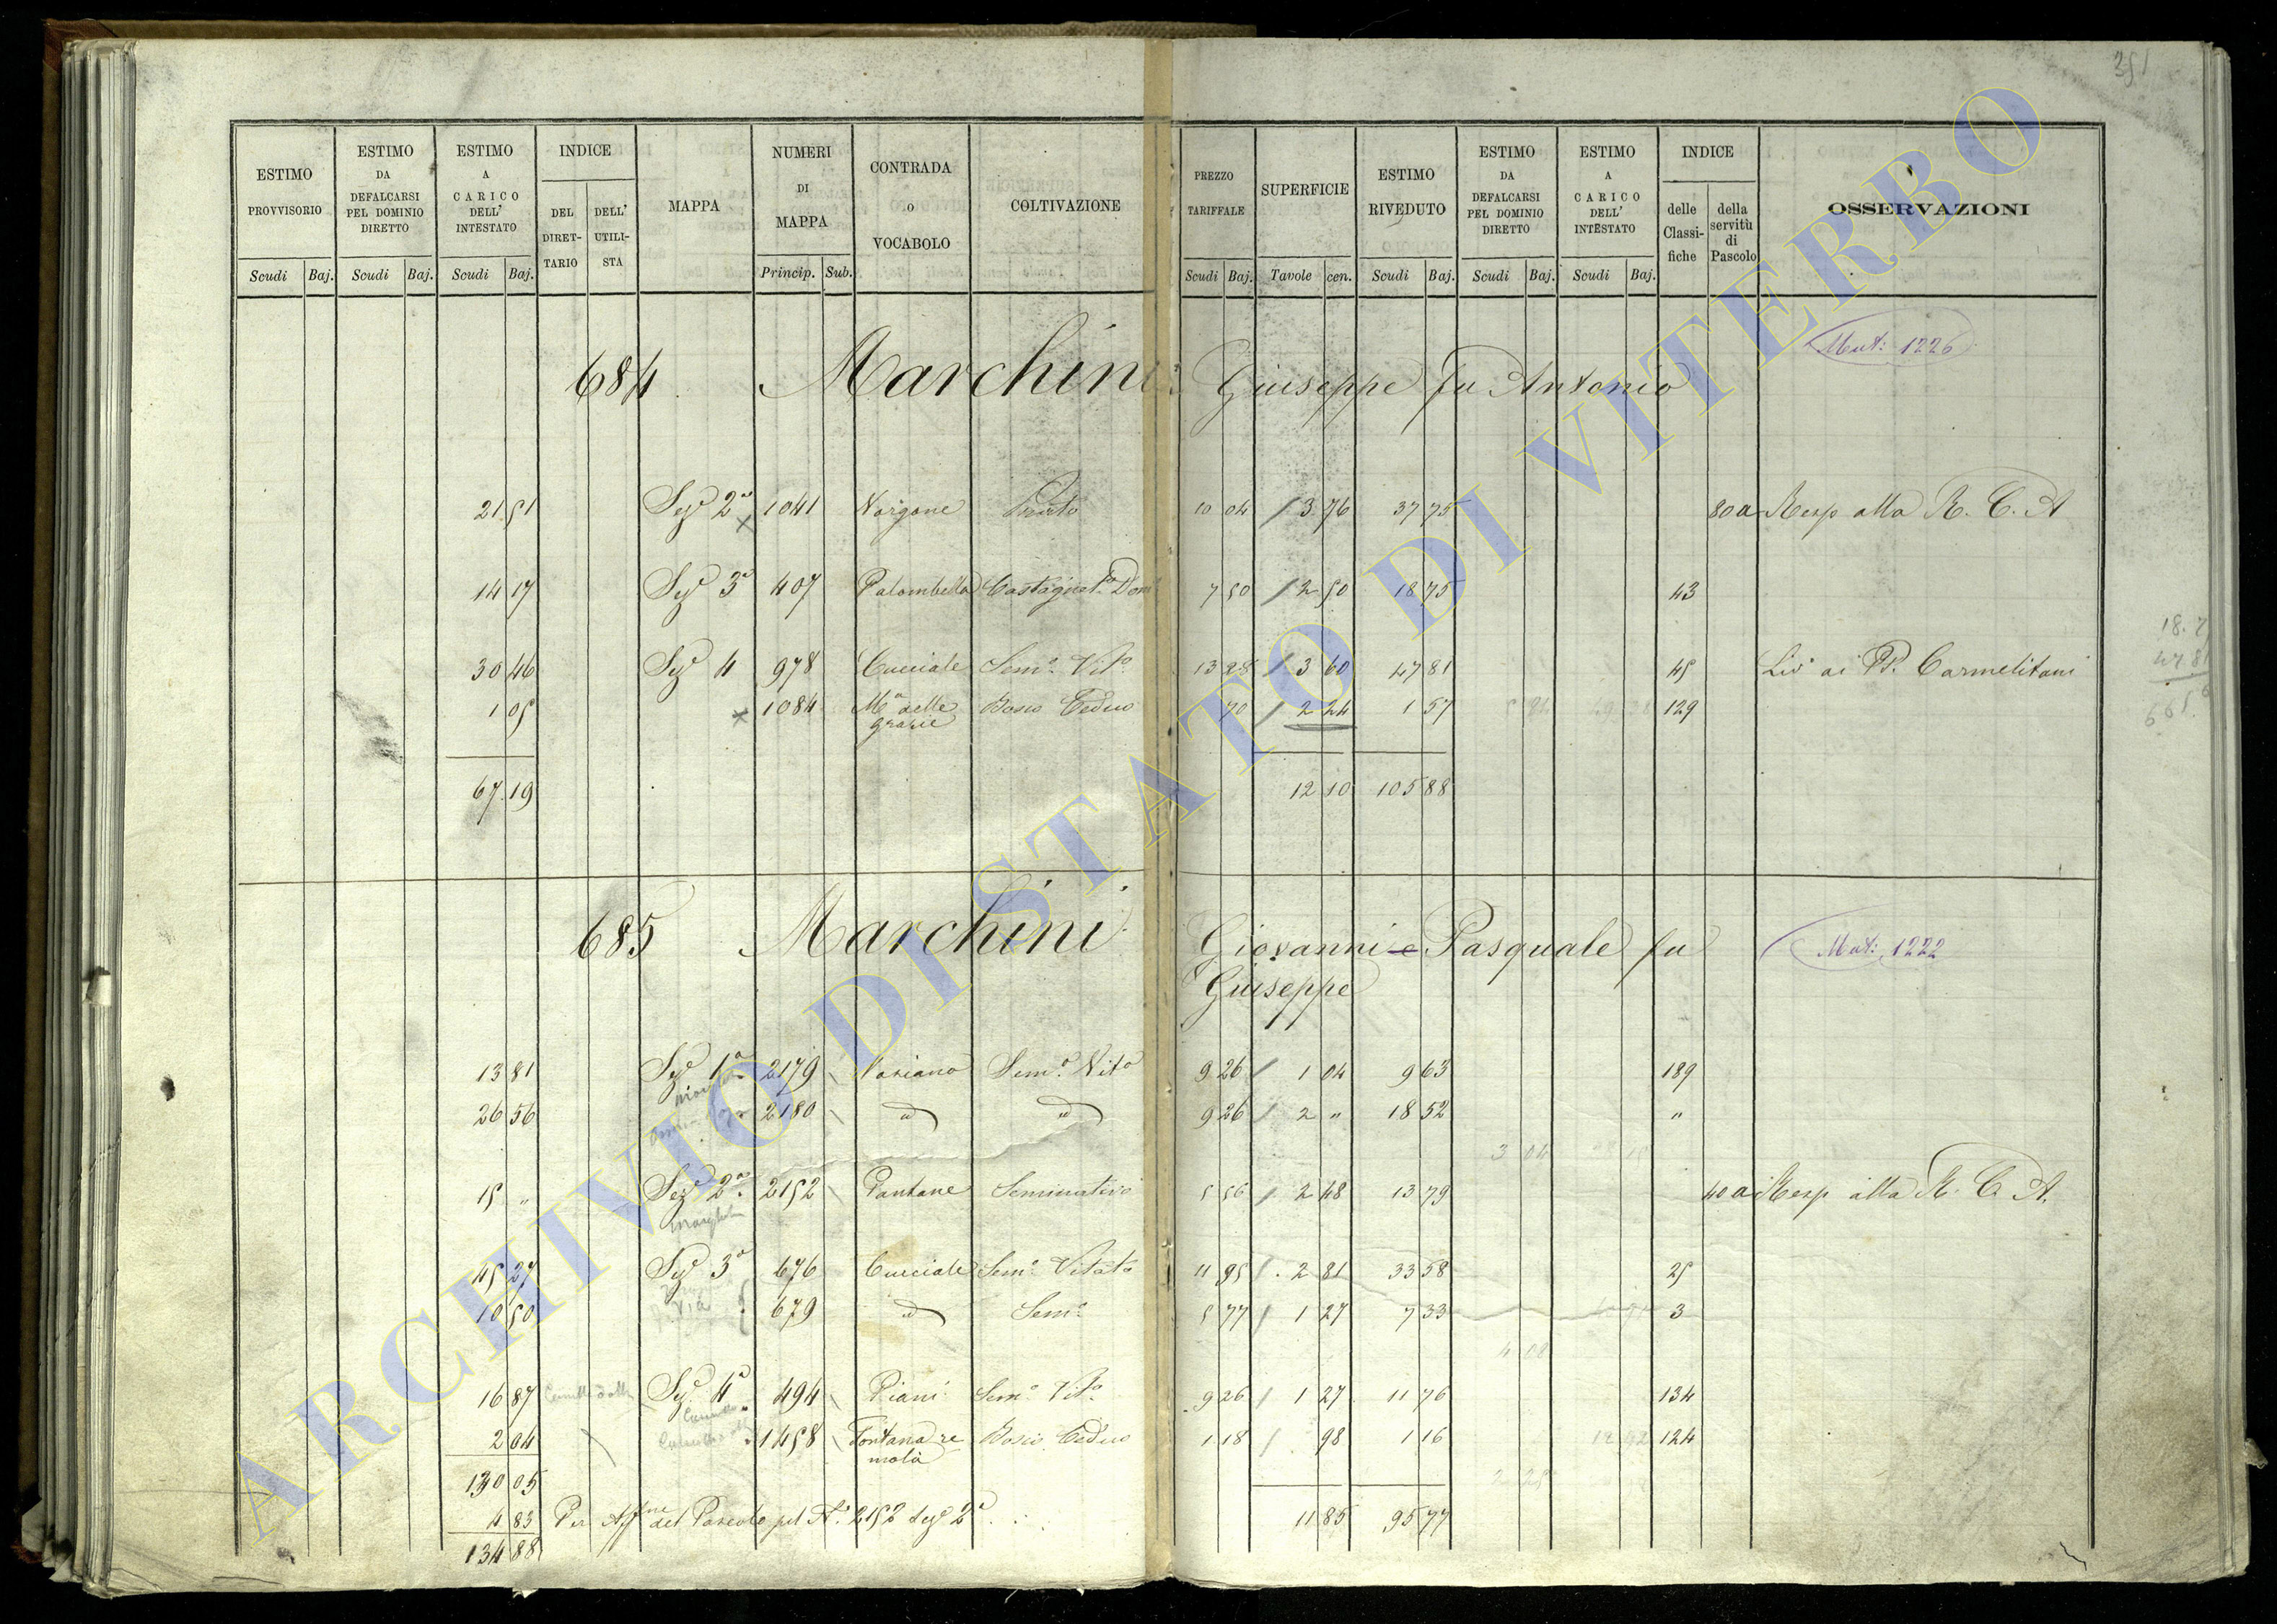 351
ESTIMO PROVVISORIO Scudi Baj.
ESTIMO DA DEFALCARSI PEL DOMINIO DIRETTO Scudi Baj.
ESTIMO A CARICO DELL' INTESTATO Scudi Baj.
INDICE DEL DIRET- TARIO DELL' UTILI- STA
MAPPA
NUMERI DI MAPPA Princip. Sub.
CONTRADA o VOCABOLO
COLTIVAZIONE
PREZZO TARIFFALE Scudi Baj.
SUPERFICIE Tavole cen.
ESTIMO RIVEDUTO Scudi Baj.
ESTIMO DA DEFALCARSI PEL DOMINIO DIRETTO Scudi Baj.
ESTIMO A CARICO DELL' INTESTATO Scudi Baj.
INDICE delle Classi- fiche della servitù di Pascolo
OSSERVAZIONI
Mut: 1226
684 Marchini Giuseppe fu Antonio
21 51 Sez.e 2a 1041 Norgone Prato 10 04 3 76 37 75 80 a Resp alla R. C. A
14 17 Sez.e 3a 407 Palombella Castagneto Dom 7 50 2 50 18 75 43
30 46 Sez.e 4 978 Cucciale Sem.o Vit.o 13 28 3 60 47 81 45 Liv.o ai PP. Carmelitani
1 05 1084 Ma delle grazie Bosco Ceduo 70 2 24 1 57 129
67.19 12 10 105 88
685 Marchini Giovanni e Pasquale fu Giuseppe
Mut: 1222
13 81 Sez.e 1a 2179 Sem.o Vit.o 9 26 1 04 9 63 189
26 56 2180 d d 9 26 2 " 18 52 "
15 " Sez.e 2a 2152 Pantane Seminativo 5 56 2 48 13 79 40 a Resp alla R. C. A.
45 27 Sez.e 3a 676 Cucciale Sem.o Vitato 11 95 2 81 33 58 25
10 50 Via 679 d Sem.o 5 77 1 27 7 33 3
16 87 Sez.e 4a 494 Piani Sem.o Vit.o 9 26 1 27 11 76 134
2 04 1458 Fontana re mola Bosco Ceduo 1 18 98 1 16 124
130 05
4 83 Per Aff.ne del Pascolo pel N.o 2152 Sez.e 2a 11 85 95 77
134 88
ARCHIVIO DI STATO DI VITERBO